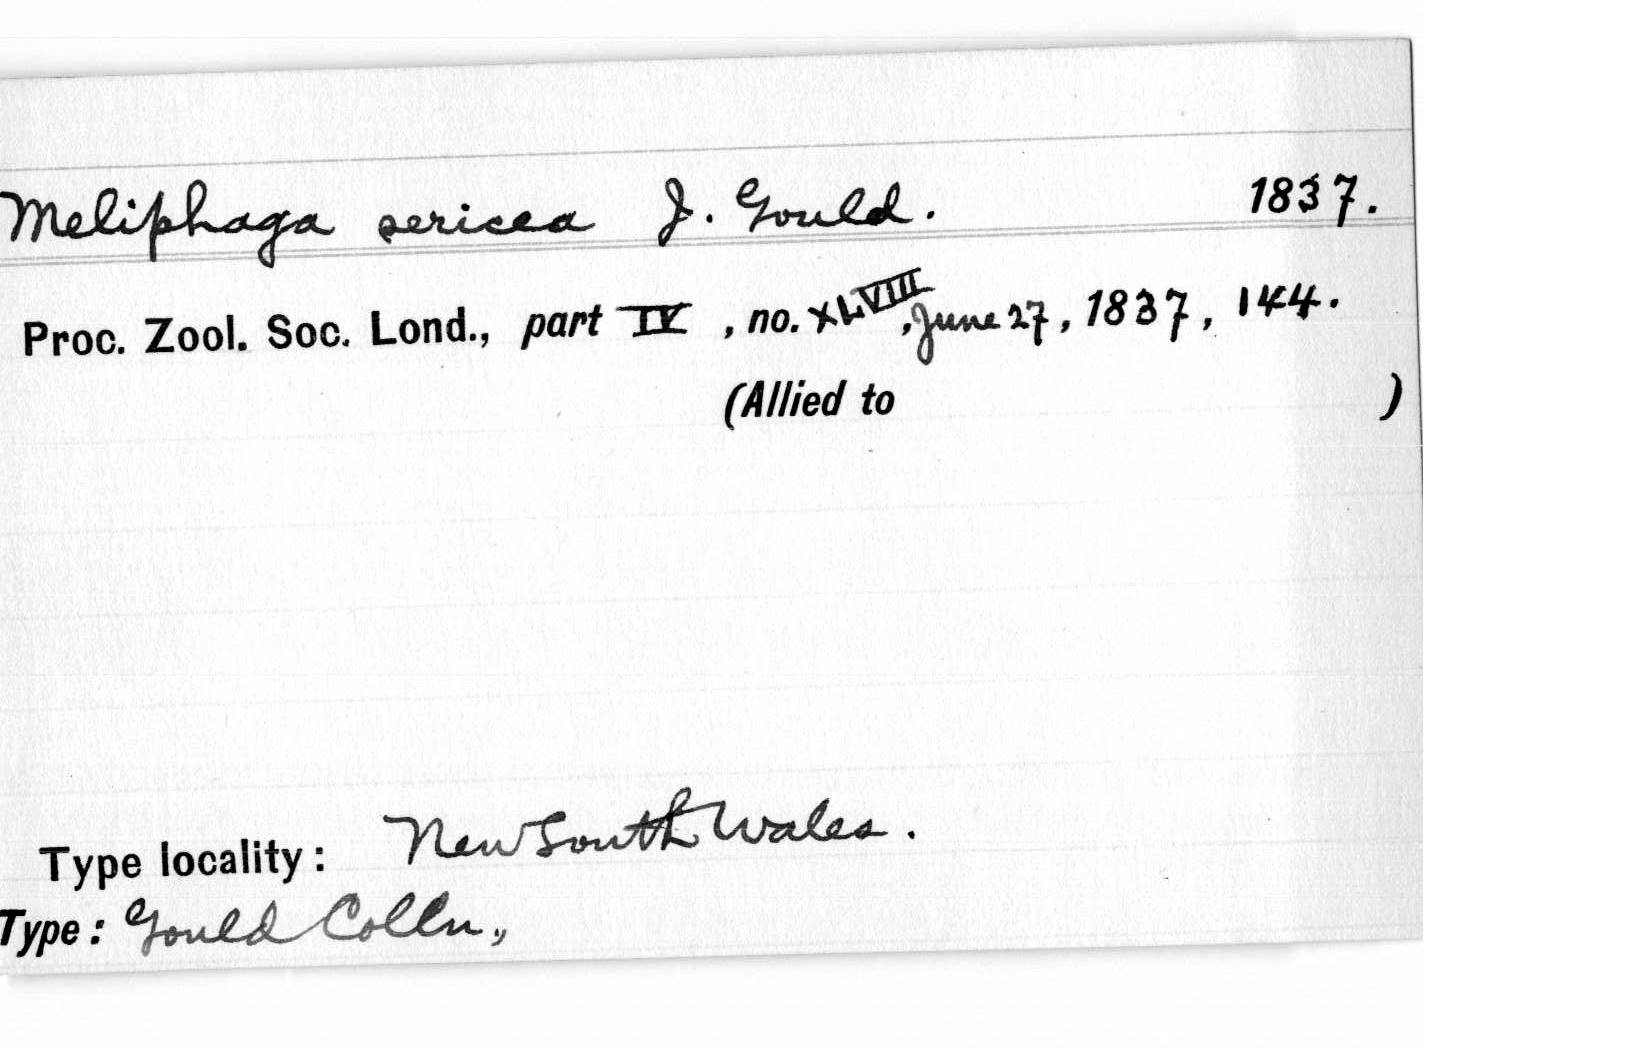 Meliphaga sericea J. Gould. 1837.
Proc. Zool. Soc. Lond., part IV, no. XLVIII, June 27, 1837, 144.
(Allied to )
Type locality: New South Wales.
Type: Gould Colln.,